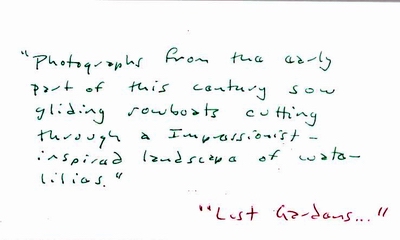 "Photographs from the early
part of this century sow
gliding rowboats cutting
through a Impressionist-
inspired landscape of wate-
lilies."
"Lost Gardens..."